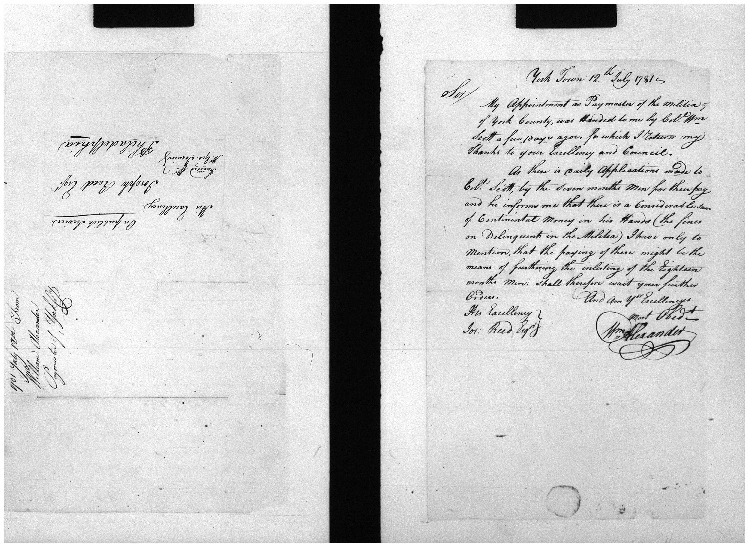 On public Service
His Excellency
Joseph Reed Esqr
Philadelphia
1781 July 12th From
William Alexander
Paymaster of
York Town 12th July 1781
Sir
My Appointment as Paymaster of the Militia
of York County, was Handed to me by Colo. Wm
Scott a few Days agoe. for which I Return my
Thanks to your Excellency and Council.
As there is Daily Applications made to
Colo. Scott, by the Seven months Men for their pay
and he informs me that there is a Considerable Sum
of Continental Money in his Hands (the fines
on Delinquents in the Militia) I have only to
Mention, that the paying of these might be the
means of furthering the enlisting of the Eighteen
months Men. Shall therefore wait your further
Orders.
And Am Yr Excellencys
most Obedt
Wm Alexander
His Excellency
Jos. Reed Esqr